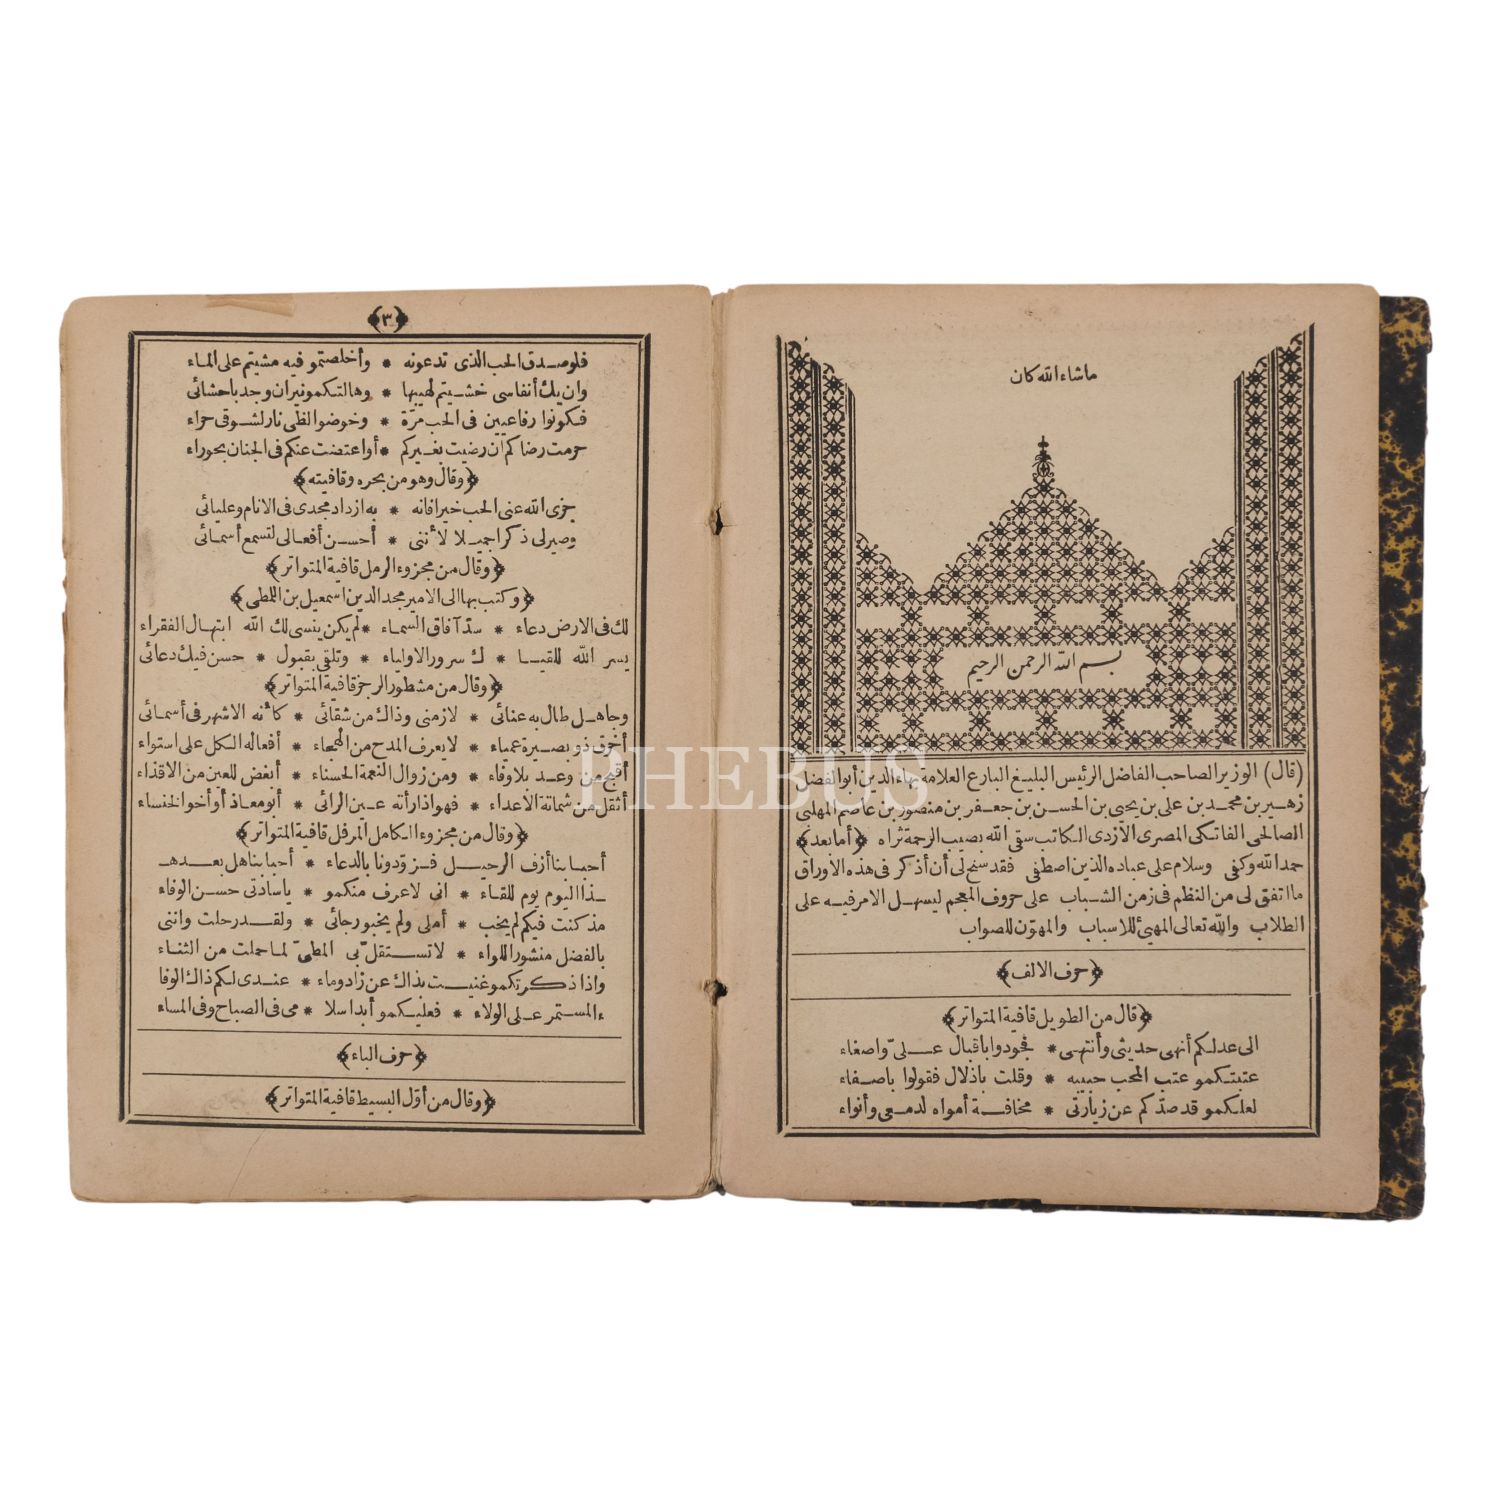 ما شاء الله كان
بسم الله الرحمن الرحيم
(قال) الوزير الصاحب الفاضل الرئيس البليغ البارع العلامة بهاء الدين أبو الفضل
زهير بن محمد بن على بن يحيى بن الحسن بن جعفر بن منصور بن عاصم المهلبى
الصالحى الفاتكى المصرى الأزدى الكاتب سقى الله بصيب الرحمة ثراه ﴿أما بعد﴾
حمد الله وكفى وسلام على عباده الذين اصطفى فقد سنح لى أن أذكر فى هذه الأوراق
ما اتفق لى من النظم فى زمن الشباب على حروف المعجم ليسهل الامر فيه على
الطلاب والله تعالى المهيئ للاسباب والمهوّن للصواب
﴿حرف الالف﴾
﴿قال من الطويل قافية المتواتر﴾
الى عدلكم أنهى حديثى وأنتهى * فجودوا باقبال علىّ واصغاء
عتبتكمو عتب المحب حبيبه * وقلت باذلال فقولوا باصغاء
لعلكمو قد صدّكم عن زيارتى * مخافة أمواه لدمعى وأنواء
﴿٣﴾
فلو صدق الحب الذى تدعونه * وأخلصتمو فيه مشيتم على الماء
وان يك أنفاسى خشيتم لهيبها * وهالتكمو نيران وجد باحشائى
فكونوا رفاعيين فى الحب مرّة * وخوضوا لظى نار لشوقى حراء
حرمت رضاكم ان رضيت بغيركم * أو اعتضت عنكم فى الجنان بحوراء
﴿وقال وهو من بحره وقافيته﴾
جزى الله عنى الحب خيرا فانه * به ازداد مجدى فى الانام وعليائى
وصير لى ذكرا جميلا لأننى * أحسن أفعالى لتسمع أسمائى
﴿وقال من مجزوء الرمل قافية المتواتر﴾
﴿وكتب بها الى الامير مجد الدين اسمعيل بن اللمطى﴾
لك فى الارض دعاء * سدّ آفاق السماء * لم يكن ينسى لك الله ابتهال الفقراء
يسر الله للقيا * ك سرور الاولياء * وتلقى بقبول * حسن فيك دعائى
﴿وقال من مشطور الرجز قافية المتواتر﴾
وجاهل طال به عنائى * لازمنى وذاك من شقائى * كأنه الاشهر فى أسمائى
أخرق ذو بصيرة عمياء * لا يعرف المدح من الهجاء * أفعاله الكل على استواء
أقبح من وعد بلا وفاء * ومن زوال النعمة الحسناء * أبغض للعين من الاقذاء
أثقل من شماتة الأعداء * فهو اذا رأته عين الرائى * أبو معاذ أو أخو الخنساء
﴿وقال من مجزوء الكامل المرفل قافية المتواتر﴾
أحبابنا أزف الرحيل فزودونا بالدعاء * أحبابنا هل بعد هـ
ـذا اليوم يوم للقاء * انى لاعرف منكمو * يا سادتى حسن الوفاء
مذ كنت فيكم لم يخب * أملى ولم يخبو رجائى * ولقد رحلت واننى
بالفضل منشور اللواء * لا تستقل بى المطىّ لما حملت من الثناء
واذا ذكرتكمو غنيت بذاك عن زاد وماء * عندى لكم ذاك الوفا
ء المستمر على الولاء * فعليكمو أبدا سلا * مى فى الصباح وفى المساء
﴿حرف الباء﴾
﴿وقال من أوّل البسيط قافية المتواتر﴾
PHEBUS